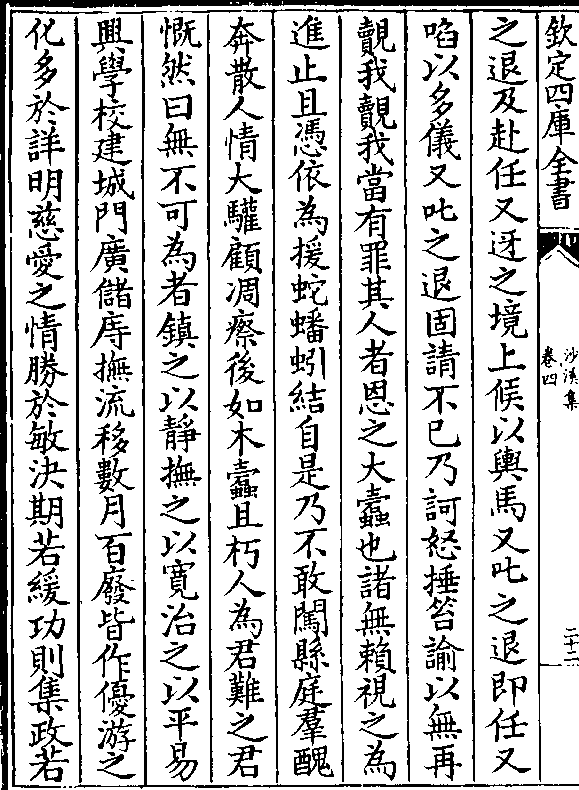 欽定四庫全書
沙溪集
卷四
二十二
之退及赴任又迓之境上候以輿馬又叱之退即任又
啗以多儀又叱之退固請不已乃訶怒捶笞諭以無再
覿我覿我當有罪其人者恩之大蠧也諸無賴視之為
進止且憑依為援蛇蟠蚓結自是乃不敢闖縣庭羣醜
奔散人情大驩顧凋瘵後如木蠧且朽人為君難之君
慨然曰無不可為者鎮之以靜撫之以寛治之以平易
興學校建城門廣儲庤撫流移數月百廢皆作優游之
化多於詳明慈愛之情勝於敏決期若緩功則集政若